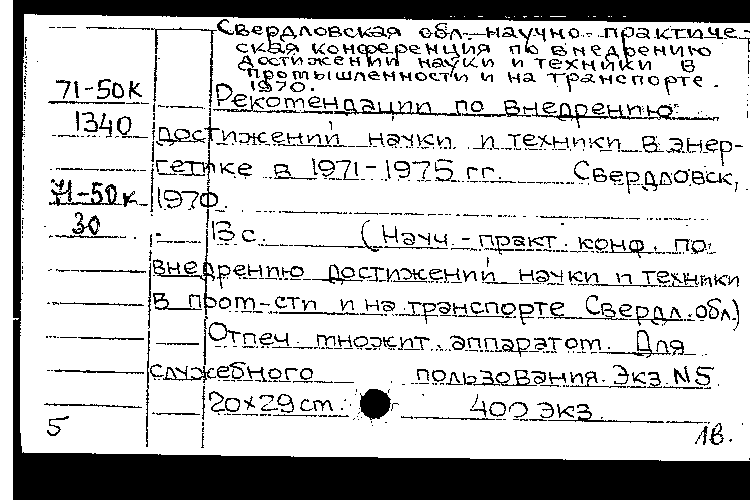 Свердловская обл. научно-практиче-
ская конференция по внедрению
достижений науки и техники в
промышленности и на транспорте.
1970.
71-50к
Рекомендации по внедрению
1340
достижений науки и техники в энер-
гетике в 1971-1975 гг. Свердловск,
71-50к
1970.
30
13 с. (Науч.-практ. конф. по
внедрению достижений науки и техники
в пром-сти и на транспорте Свердл. обл.)
Отпеч. множит. аппаратом. Для
служебного пользования. Экз. N5
20×29 см. 400 экз.
5
1В.